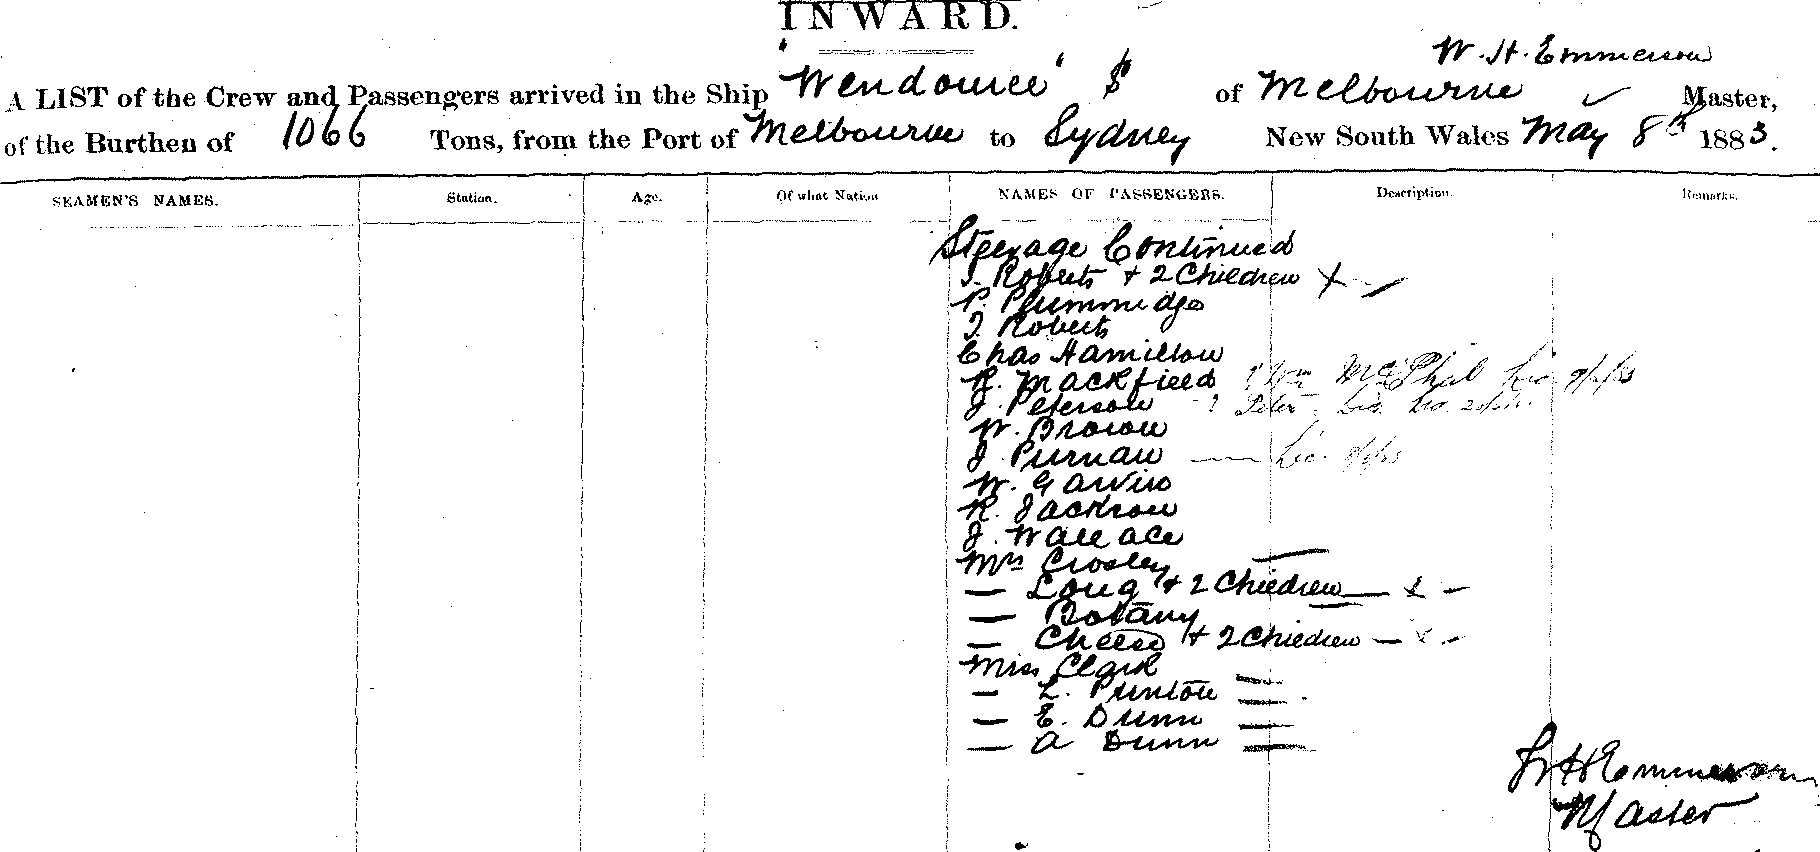 INWARD.
W. H. Emmerson
A LIST of the Crew and Passengers arrived in the Ship "Wendouree" S of Melbourne Master,
of the Burthen of 1066 Tons, from the Port of Melbourne to Sydney New South Wales May 8th 1883.
SEAMEN'S NAMES. Station. Age. Of what Nation NAMES OF PASSENGERS. Description. Remarks.
Steerage Continued
Roberts + 2 Children
P. Plummidge
Roberts
Chas Hamilton
R. Mackfield Wm McPhil
J. Peterson Peter
W. Brown
J. Purnau
W. Garvin
R. Jackson
J. Wallace
Mrs Crosley
— Long + 2 Children
— Botany
— Cheese + 2 Children
Miss Clark
— L. Punton
— E. Dunn
— A Dunn
W H Emmerson
Master